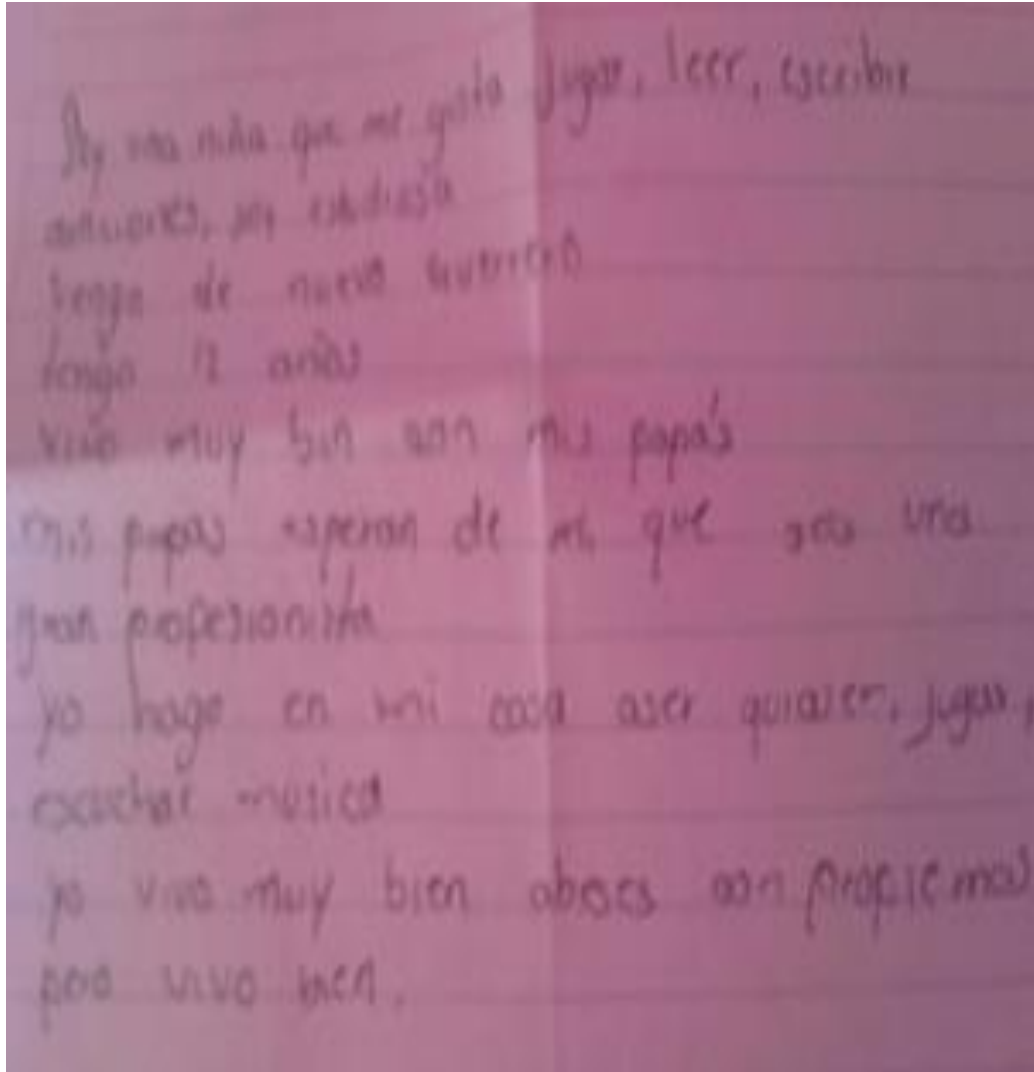 Soy una niña que me gusta jugar, leer, escribir
soy estudiosa
Vengo de nuevo Guerrero
tengo 12 años
Vivo muy bin con mis papás
mis papas esperan de mi que sea una
gran profesionista
yo hago en mi casa aser quiaser, jugar,
escuchar musica
yo vivo muy bien abeses con propiemas
pero vivo bien.